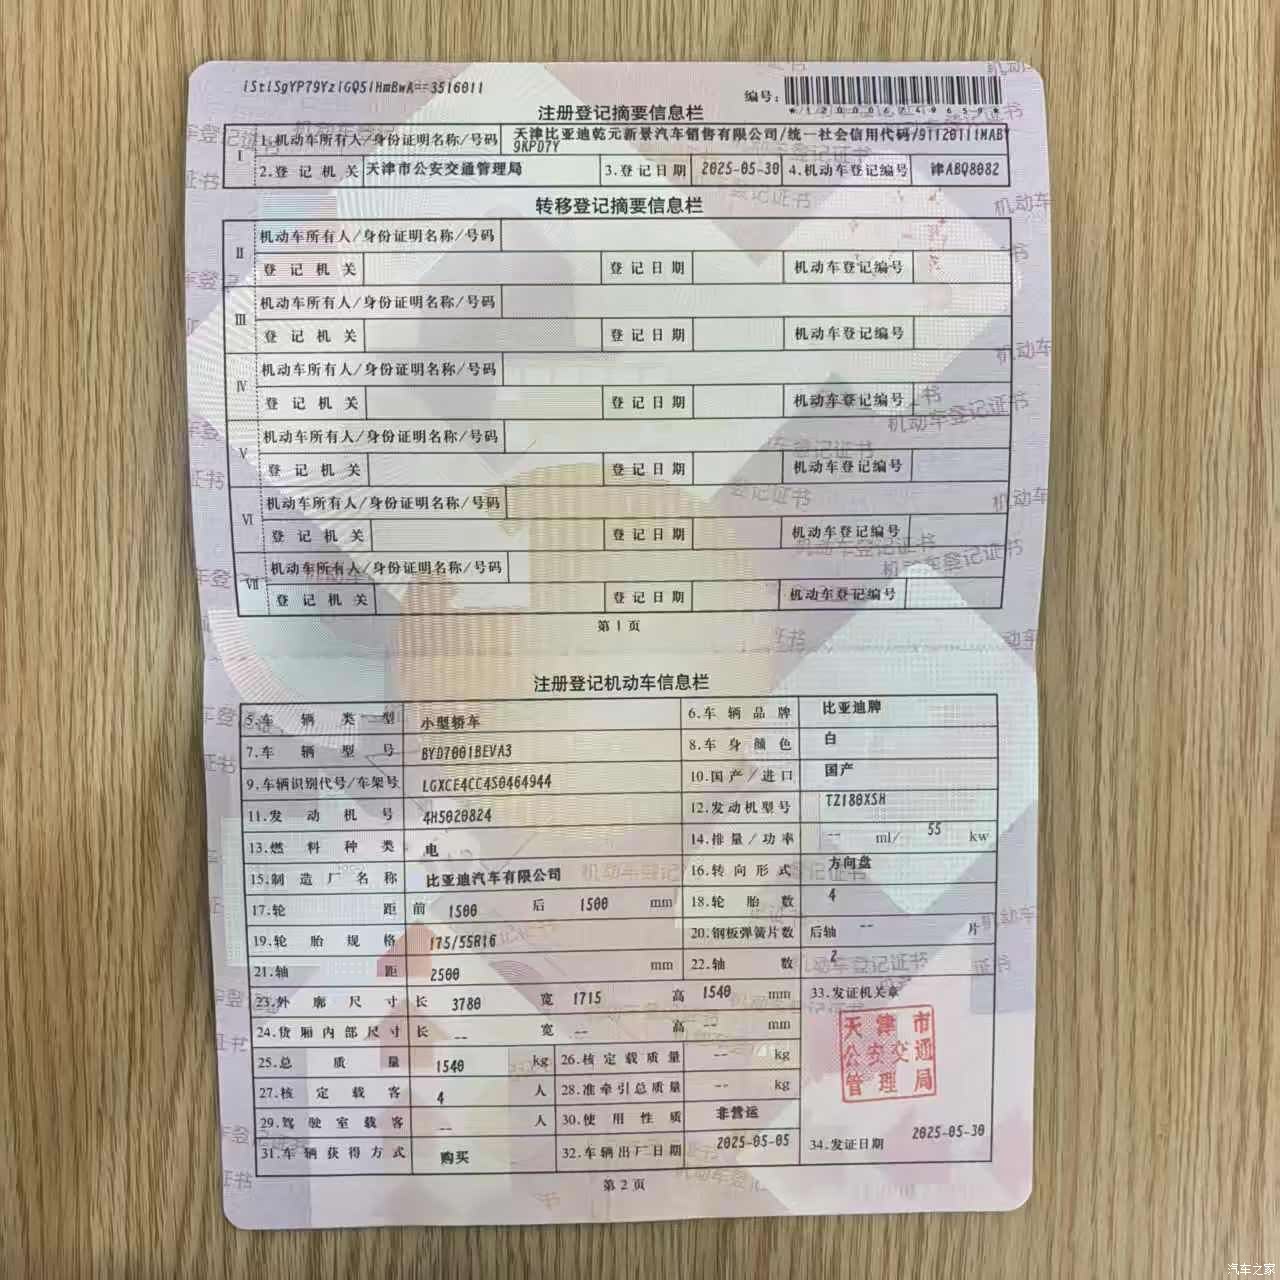 iStiSgYP79YziGQ5iHmBwA==3516011
编号:
*120006749659*
注册登记摘要信息栏
I 1.机动车所有人/身份证明名称/号码 天津比亚迪乾元新景汽车销售有限公司/统一社会信用代码/91120111MABY
9KPD7Y
2.登记机关 天津市公安交通管理局 3.登记日期 2025-05-30 4.机动车登记编号 津ABQ8082
转移登记摘要信息栏
II 机动车所有人/身份证明名称/号码
登记机关 登记日期 机动车登记编号
III 机动车所有人/身份证明名称/号码
登记机关 登记日期 机动车登记编号
IV 机动车所有人/身份证明名称/号码
登记机关 登记日期 机动车登记编号
V 机动车所有人/身份证明名称/号码
登记机关 登记日期 机动车登记编号
VI 机动车所有人/身份证明名称/号码
登记机关 登记日期 机动车登记编号
VII 机动车所有人/身份证明名称/号码
登记机关 登记日期 机动车登记编号
第1页
注册登记机动车信息栏
5.车辆类型 小型轿车 6.车辆品牌 比亚迪牌
7.车辆型号 BYD7001BEVA3 8.车身颜色 白
9.车辆识别代号/车架号 LGXCE4CC4S0464944 10.国产/进口 国产
11.发动机号 4H5020824 12.发动机型号 TZ180XSH
13.燃料种类 电 14.排量/功率 -- ml/ 55 kw
15.制造厂名称 比亚迪汽车有限公司 16.转向形式 方向盘
17.轮距 前 1500 后 1500 mm 18.轮胎数 4
19.轮胎规格 175/55R16 20.钢板弹簧片数 后轴 -- 片
21.轴距 2500 mm 22.轴数 2
23.外廓尺寸 长 3780 宽 1715 高 1540 mm 33.发证机关章
24.货厢内部尺寸 长 -- 宽 -- 高 -- mm
天津市
公安交通
管理局
25.总质量 1540 kg 26.核定载质量 -- kg
27.核定载客 4 人 28.准牵引总质量 -- kg
29.驾驶室载客 -- 人 30.使用性质 非营运
31.车辆获得方式 购买 32.车辆出厂日期 2025-05-05 34.发证日期 2025-05-30
第2页
汽车之家